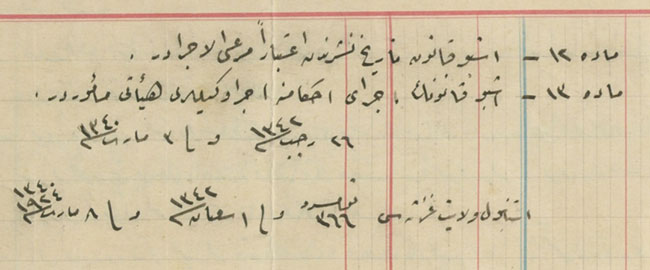 ماده ١٢ – اشبو قانون تاريخ نشرندن اعتباراً مرعى الاجرادر .
ماده ١٣ – اشبو قانونك اجراى احكامنه اجرا وكيللرى هيأتى مأموردر .
٢٦ رجب ١٣٤٢ و ٣ مارت ١٣٤٠
استنبول ولايت غزته سى نومرو ٣٦٦ و ١ شعبان ١٣٤٢ و ٨ مارت ١٣٤٠ ١٩٢٤